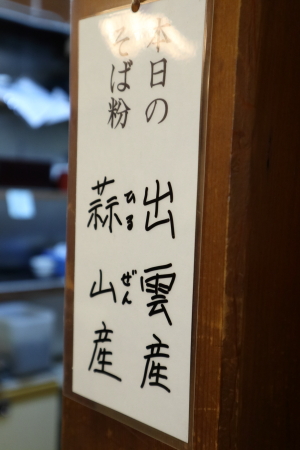 本日の
そば粉
出雲産
蒜山産
ひるぜん